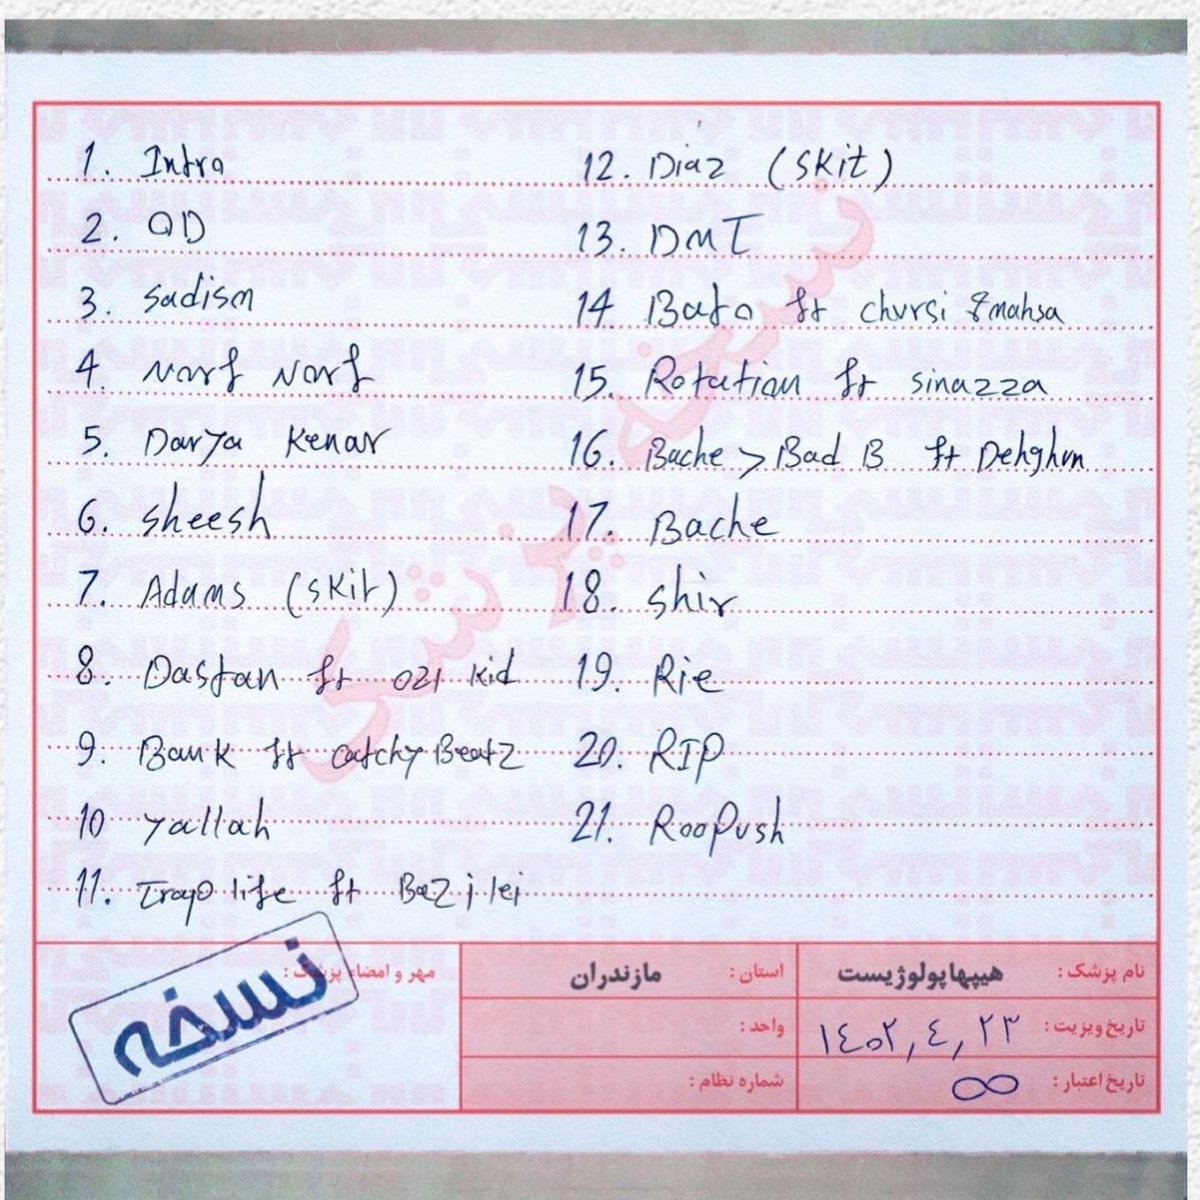 1. Intro
2. QD
3. Sadism
4. Norf Norf
5. Darya Kenar
6. Sheesh
7. Adams (Skit)
8. Dastan ft 021 Kid
9. Bank ft Catchy Beatz
10 Yallah
11. Trap life ft
12. Diaz (Skit)
13. DMT
14 Bato ft Chvrsi & mahsa
15. Rotation ft sinazza
16. Bache > Bad B ft Dehghvn
17. Bache
18. Shir
19. Rie
20. RIP
21. RooPush
نسخه پزشکی
نام پزشک : هیپهاپولوژیست
استان : مازندران
مهر و امضاء پزشک :
تاریخ ویزیت : ۱٤۰۲,٤,۲۳
واحد :
تاریخ اعتبار : ∞
شماره نظام :
نسخه